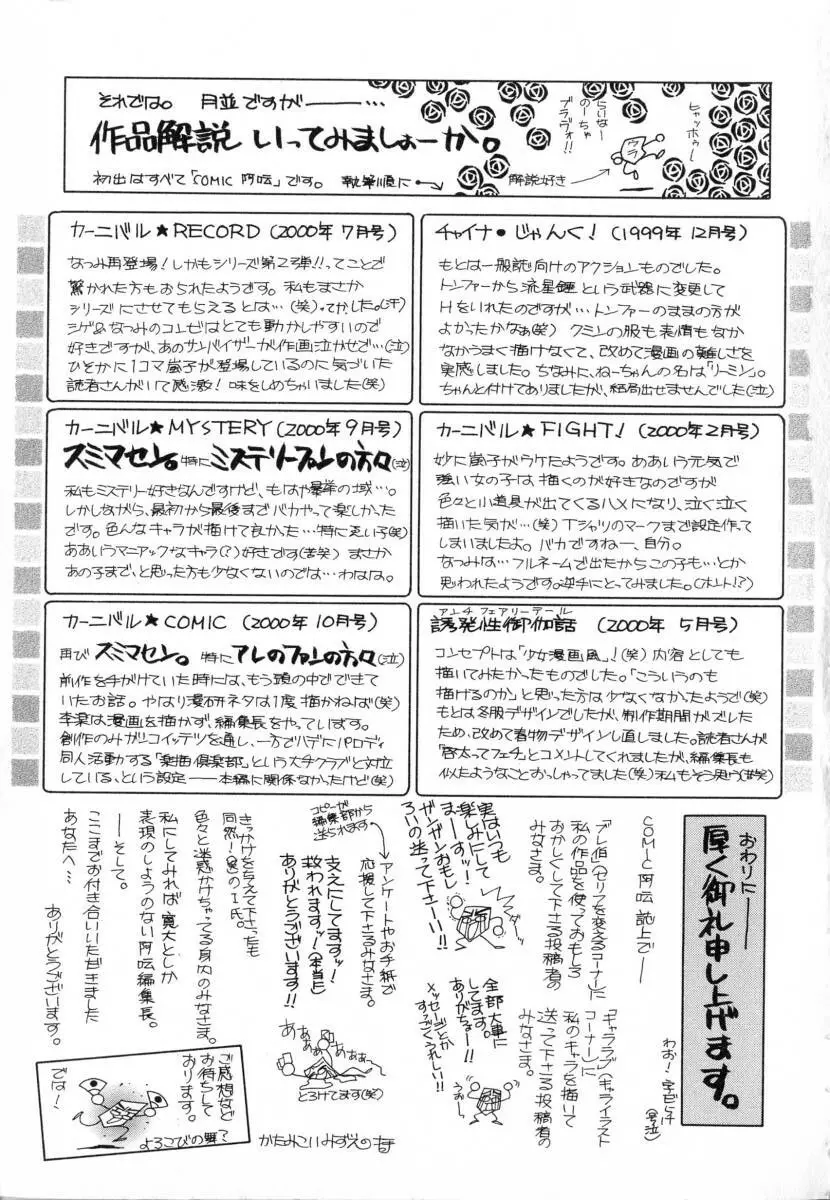 それでは。 月並ですが———…
作品解説 いってみましぉーか。
初出はすべて「COMIC 阿吽」です。 執筆順に
解説好き
ウラ
ブラヴォ!!
ヒャッホゥー
チャイナ・じゃんく! (1999年12月号)
もとは一般誌向けのアクションものでした。
トンファーから流星錘という武器に変更して
Hをいれたのですが…トンファーのままの方が
よかったかなぁ(笑) クミンの服も表情もなか
なかうまく描けなくて、改めて漫画の難しさを
実感しました。ちなみに、ねーちゃんの名は「リーミン」。
ちゃんと付けてありましたが、結局出せませんでした(泣)
カーニバル★FIGHT! (2000年2月号)
妙に嵐子がウケたようです。ああいう元気で
強い女の子は描くのが好きなのですが
色々と小道具が出てくるハメになり、泣く泣く
描いた気が…(笑) Tシャツのマークまで設定作って
しまいましたよ。バカですねー、自分。
なつみは…フルネームで出たからこの子も…とか
思われたようです。逆手にとってみました。(ホント!?)
アンチ フェアリーテール
誘発性御伽話 (2000年5月号)
コンセプトは「少女漫画風」!(笑) 内容としても
描いてみたかったものでした。「こういうのも
描けるのか」と思った方は少なくなかったようで(笑)
もとは冬服デザインでしたが、制作期間がズレた
ため、改めて春物デザインし直しました。読者さんが
「啓太ってフェチ」とコメントしてくれましたが、編集長も
似たようなことおっしゃってました(笑)私もそう思う(苦笑)
カーニバル★RECORD (2000年7月号)
なつみ再登場!しかもシリーズ第2弾!!ってことで
驚かれた方もおられたようです。私もまさか
シリーズにさせてもらえるとは…(笑)、てか、した。(汗)
シゲ&なつみのコンビはとても動かしやすいので
好きですが、あのサンバイザーが作画泣かせで…(泣)
ひそかに1コマ嵐子が登場しているのに気づいた
読者さんがいて感激!味をしめちゃいました(笑)
カーニバル★MYSTERY (2000年9月号)
スミマセン。特にミステリーファンの方々(泣)
私もミステリー好きなんですけど、もはや暴挙の域…。
しかしながら、最初から最後までバカやって楽しかった
です。色んなキャラが描けて良かった…特に忍い子(笑)
ああいうマニアックなキャラ(?)好きです(苦笑) まさか
あの子まで、と思った方も少なくないのでは…わはは。
カーニバル★COMIC (2000年10月号)
再びスミマセン。特にアレのファンの方々(泣)
前作を手がけていた時には、もう頭の中でできて
いたお話。やはり漫研ネタは1度描かねば(笑)
李梁は漫画を描かず、編集長をやっています。
創作のみがリコイッテツを通し、一方でハデにパロディ
同人活動する「楽描倶楽部」という大手クラブと対立
している、という設定——本編に関係なかったけど(笑)
おわりに———
厚く御礼申し上げます。
COMIC阿吽誌上で——
「プレ伯」(セリフを変えるコーナー)に
私の作品を使っておもしろ
おかしくして下さる投稿者の
みなさま。
実はいつも
楽しみにして
まーすッ!
ガンガンおもし
ろいの送って下さーい!!
わお!
(号泣)
「ギャラ・ラブ」(キャライラスト
コーナー)に
私のキャラを描いて
送って下さる投稿者の
みなさま。
全部大事に
してます。
ありがちゅー!!
メッセージとか
すっごくうれしい!!
うおぉー
コピーが
編集部から
送られます
アンケートやお手紙で
応援して下さるみなさま。
支えにしてますッ!
救われますッ!(本当に)
ありがとうございます!!
ああぁ
ああぁ
あぁぁ〜
とろけてます(笑)
きっかけを与えて下さったも
同然!(笑)のI氏。
色々と迷惑かけちゃってる身内のみなさま。
私にしてみれば寛大としか
表現のしようのない阿吽編集長。
——そして。
ここまでお付き合いいただきました
あなたへ…
ありがとうございます。
ご感想など
お待ちして
おります。
では!
よろこびの舞?
かたみこいみずえの